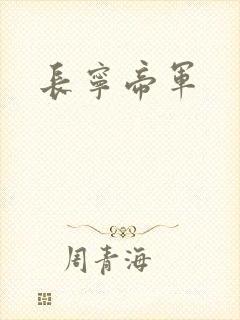 長寧帝軍
周青海